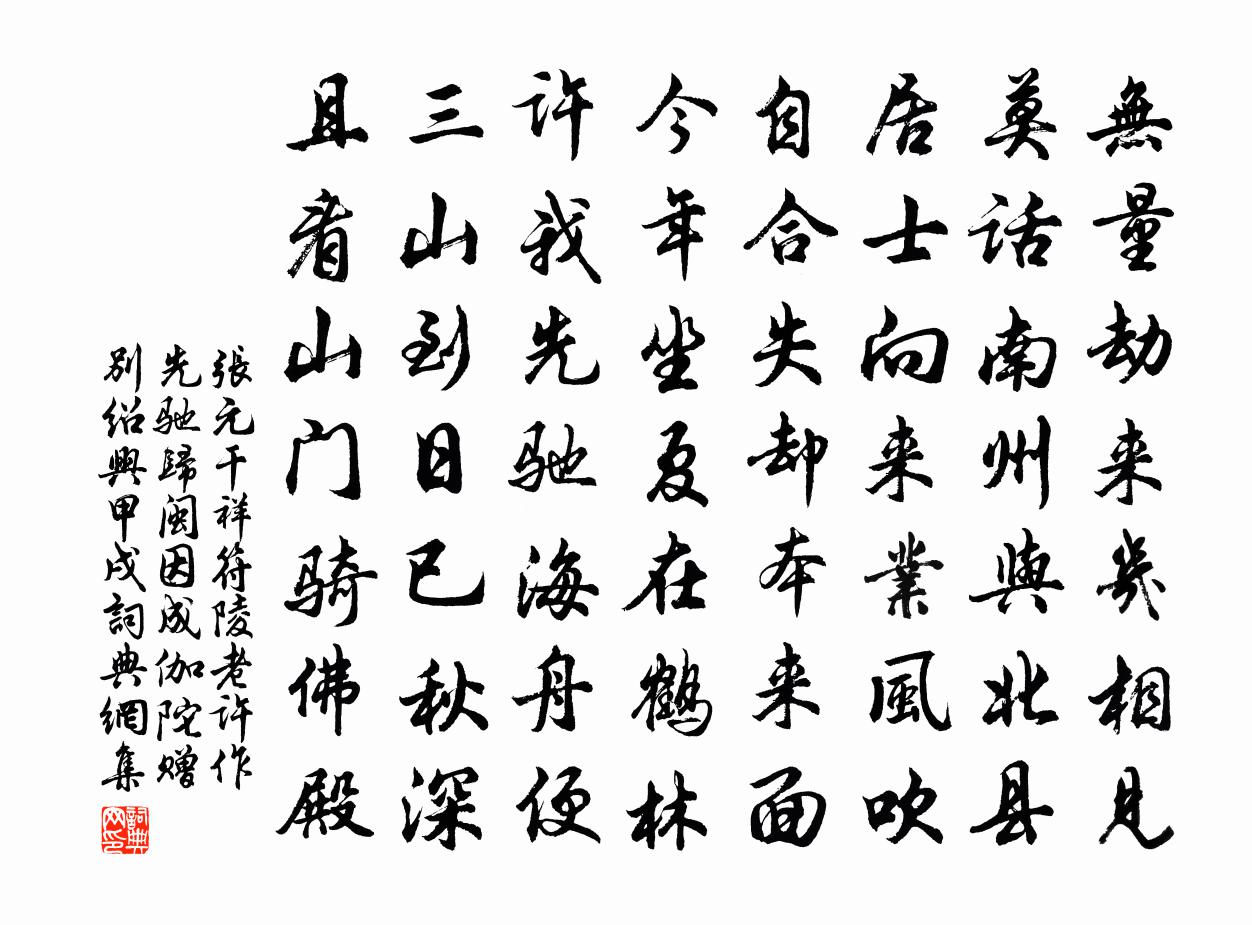 無量劫来幾相見
莫話南州與北县
居士向来業風吹
自合失却本来面
今年坐夏在鹤林
許我先馳海舟便
三山到日已秋深
且看山门骑佛殿
張元干祥符陵老許作
先馳歸闽因成伽陀赠
别紹興甲戌詞典網集
詞典网印